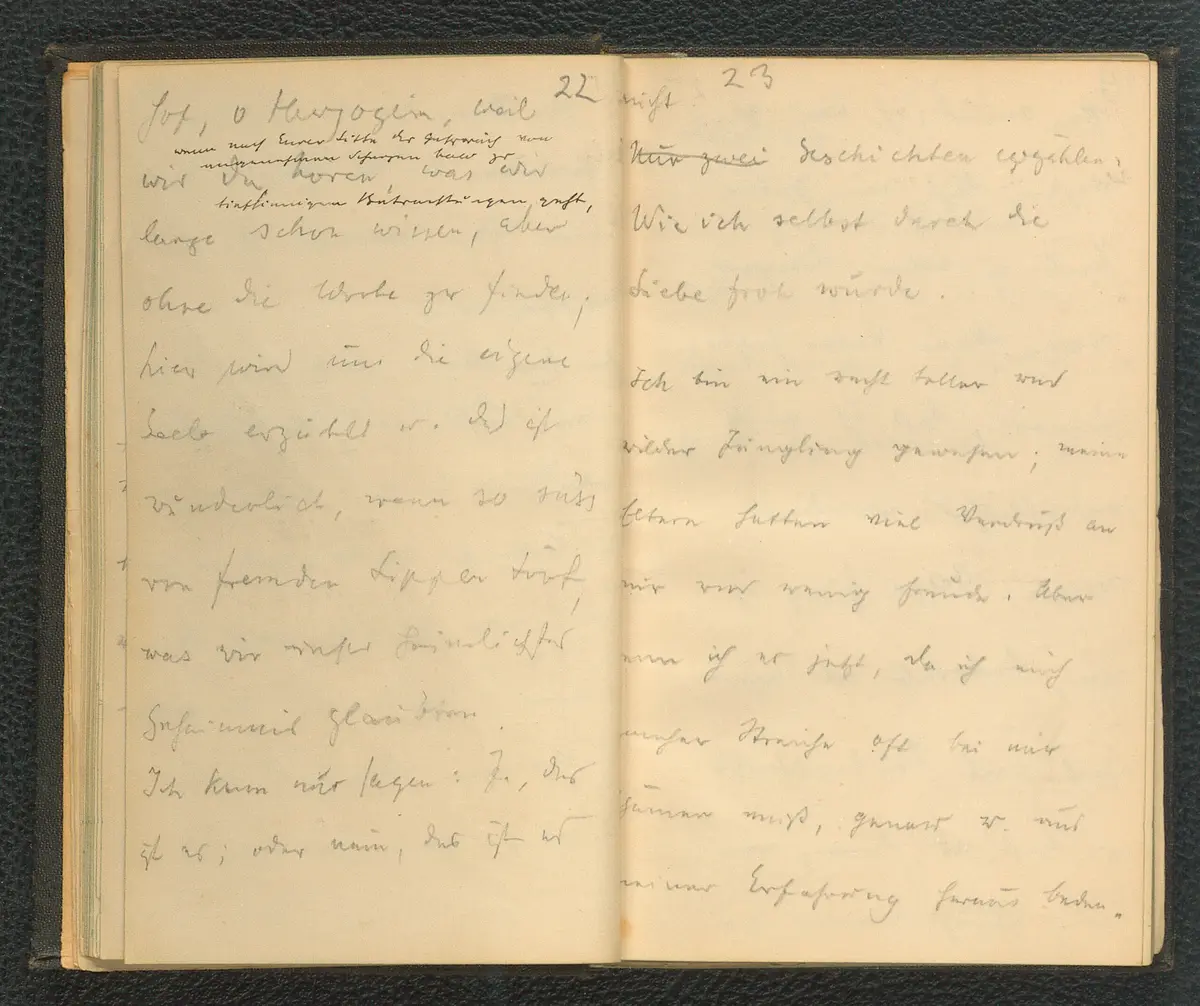 22
Hof, o Herzogin, weil
wenn nach Eurer Sitte das Gespräch von
angenehmen Scherzen zu
wir da hören, was wir
tiefsinnigen Betrachtungen geht,
lange schon wissen, aber
ohne die Worte zu finden;
hier wird uns die eigene
Seele erzählt u. das ist
wunderlich, wenn so süss
von fremden Lippen tönt,
was wir unser heimlichstes
Geheimnis glaubten.
Ich kann nur sagen: Ja, das
ist es; oder nein, das ist es
23
nicht.
Nur zwei Geschichten erzählen:
Wie ich selbst durch die
Liebe froh wurde.
Ich bin ein recht toller und
wilder Jüngling gewesen; meine
Eltern hatten viel Verdruß an
mir und wenig Freude. Aber
wenn ich es jetzt, da ich mich
Streiche oft bei mir
muß, genau u. aus
meiner Erfahrung heraus beden-